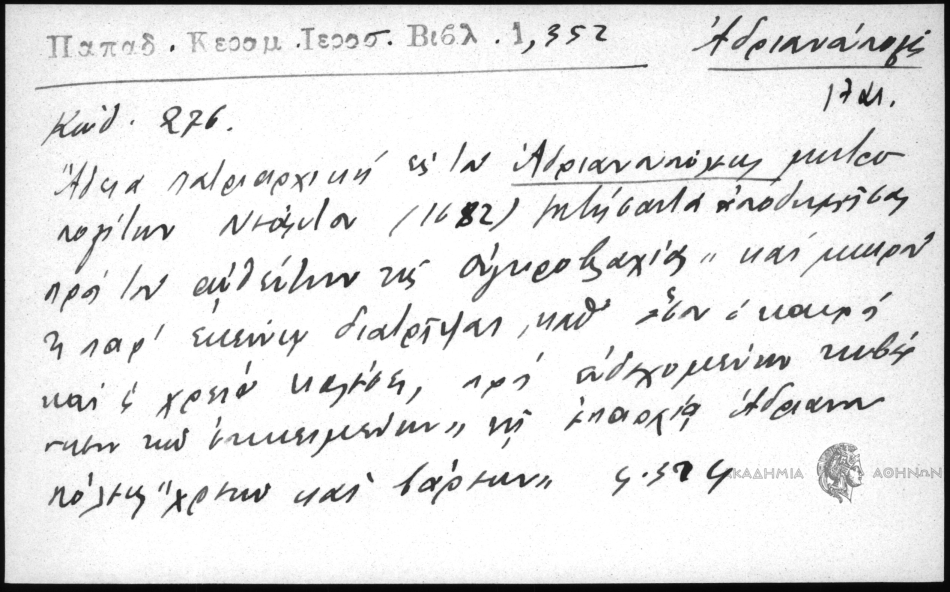 Παπαδ. Κεραμ. Ιεροσ. Βιβλ. 1, 352 Ἀδριανούπολις
17 αι.
Κωδ. 276.
Ἄδεια πατριαρχικὴ εἰς τὸν Ἀδριανουπόλεως μητρο
πολίτην Νεόφυτον (1682) ζητήσαντα ἀποδημῆσαι
πρὸς τὸν αὐθέντην τῆς Οὐγκροβλαχίας „ καὶ μικρόν
τι παρ' ἐκείνῳ διατρῖψαι, καθ' ὅσον ὁ καιρὸς
καὶ ἡ χρεία καλέσει, πρὸς ἐνδεχομένην κυβέρ
νησιν τῶν ἐπικειμένων „ τῇ ἐπαρχίᾳ Ἀδριανου
πόλεως "χρεῶν καὶ βάρεων„
ΑΚΑΔΗΜΙΑ ΑΘΗΝΩΝ